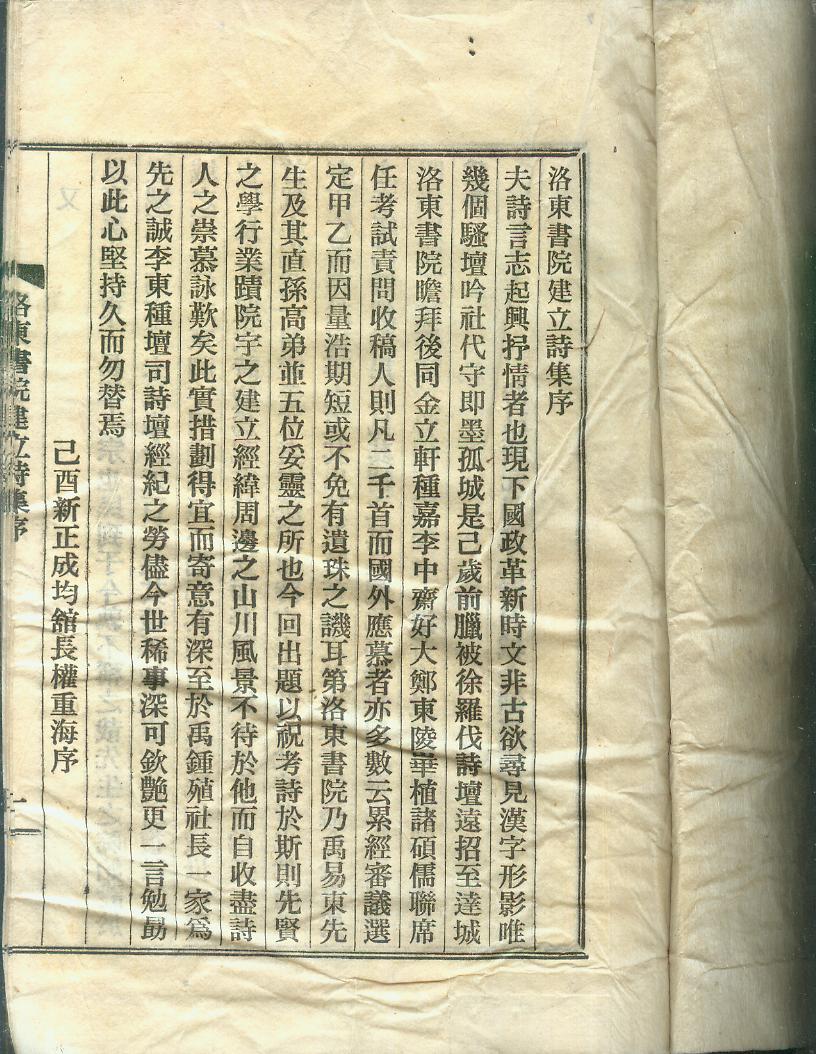 洛東書院建立詩集序
夫詩言志起興抒情者也現下國政革新時文非古欲尋見漢字形影唯
幾個騷壇吟社代守即墨孤城是己歲前臘被徐羅伐詩壇遠招至達城
洛東書院瞻拜後同金立軒種嘉李中齋好大鄭東陵華植諸碩儒聯席
任考試責問收稿人則凡二千首而國外應慕者亦多數云累經審議選
定甲乙而因量浩期短或不免有遺珠之譏耳第洛東書院乃禹易東先
生及其直孫高弟並五位妥靈之所也今回出題以祝考詩於斯則先賢
之學行業蹟院宇之建立經緯周邊之山川風景不待於他而自收盡詩
人之崇慕詠歎矣此實措劃得宜而寄意有深至於禹鍾殖社長一家爲
先之誠李東種壇司詩壇經紀之勞儘今世稀事深可欽艶更一言勉勗
以此心堅持久而勿替焉
己酉新正成均舘長權重海序
洛東書院建立詩集序